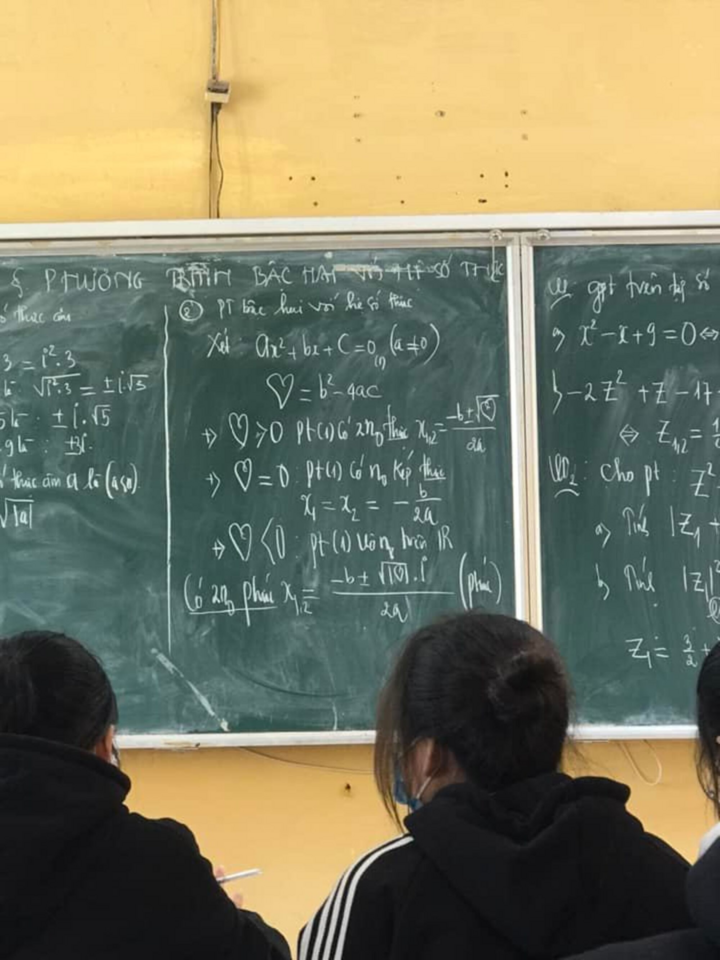 § PHƯƠNG TRÌNH BẬC HAI VỚI HỆ SỐ THỰC
số thực âm
3 = i².3
√i².3 = ±i√3
: ±i.√5
9 là : ±3i
số thực âm a là (a<0)
√|a|
② PT bậc hai với hệ số thực
Xét: ax² + bx + c = 0 (1) (a ≠ 0)
♡ = b² - 4ac
+> ♡ > 0 pt(1) có 2no thực x₁,₂ = (-b ± √♡)/2a
+> ♡ = 0 : pt(1) có no kép thực
x₁ = x₂ = - b/2a
+> ♡ < 0 : pt(1) vô no trên ℝ
Có 2no phức x₁,₂ = (-b ± √|♡|.i)/2a (phức)
: gpt trên tập số
a> x² - x + 9 = 0 ⇔
b> -2z² + z - 17
⇔ z₁,₂ =
VD₂: cho pt : z²
a> Tính |z₁ +
b> Tính |z₁|²
z₁ = 3/2 +